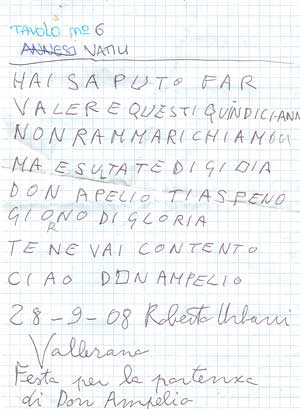 TAVOLO nº 6
ANNESI NATILI
HAI SAPUTO FAR
VALERE QUESTI QUINDICI ANN
NON RAMMARICHIAMOCI
MA ESULTATE DI GIOIA
DON APELIO TI ASPENO
GIORNO DI GLORIA
TE NE VAI CONTENTO
CIAO DON AMPELIO
28-9-08 Roberto Urbani
Vallerano
Festa per la partenza
di Don Ampelio